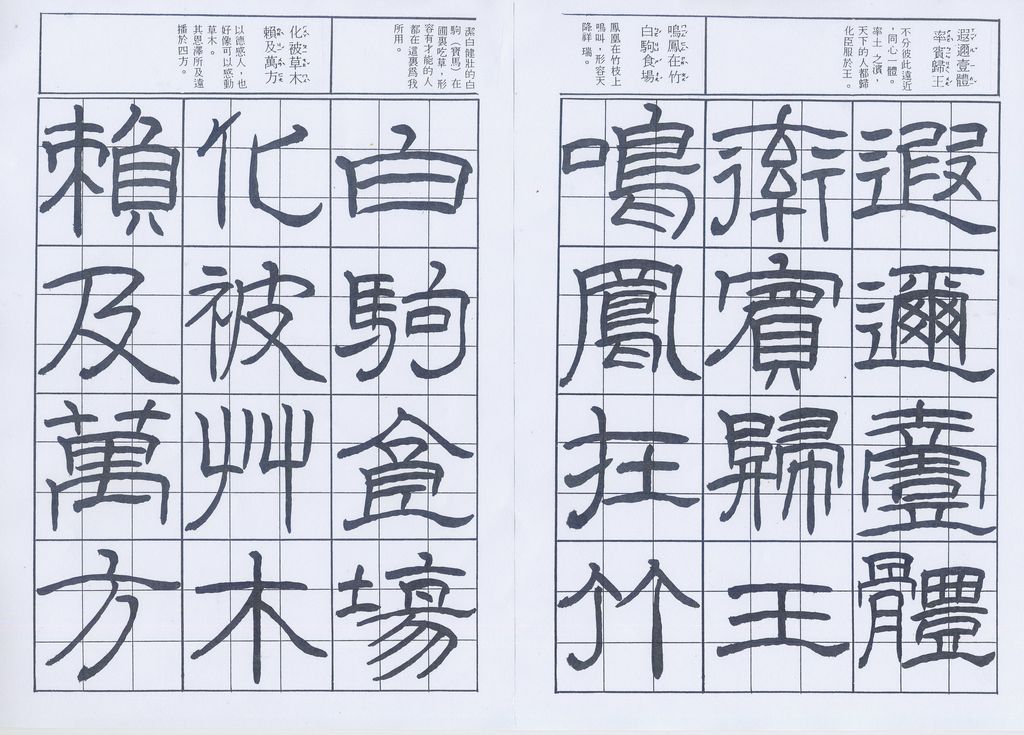 遐邇壹體
率賓歸王
不分彼此遠近
，同心一體。
率土之濱，
天下的人都歸
化臣服於王。
鳴鳳在竹
白駒食場
鳳凰在竹枝上
鳴叫，形容天
降祥瑞。
潔白健壯的白
駒（寶馬）在
園裏吃草，形
容有才能的人
都在這裏爲我
所用。
化被草木
賴及萬方
以德感人，也
好像可以感動
草木。
其恩澤所及遠
播於四方。
遐邇壹體
率賓歸王
鳴鳳在竹
白駒食場
化被艸木
賴及萬方